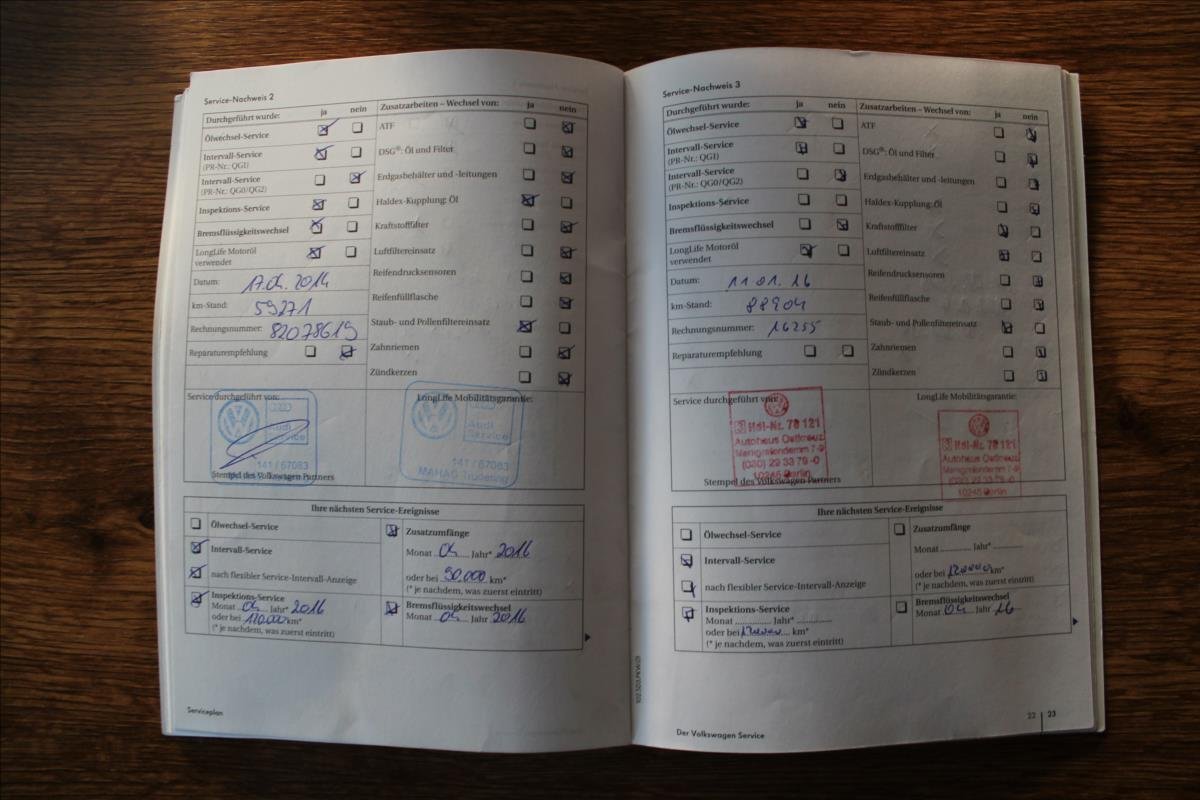 Service-Nachweis 2
Durchgeführt wurde: ja nein
Ölwechsel-Service
Intervall-Service
(PR-Nr.: QGI)
Intervall-Service
(PR-Nr.: QG0/QG2)
Inspektions-Service
Bremsflüssigkeitswechsel
LongLife Motoröl
verwendet
Datum: 17.04.2014
km-Stand: 59271
Rechnungsnummer: 82078619
Reparaturempfehlung
Zusatzarbeiten – Wechsel von: ja nein
ATF
DSG®: Öl und Filter
Erdgasbehälter und -leitungen
Haldex-Kupplung: Öl
Kraftstofffilter
Luftfiltereinsatz
Reifendrucksensoren
Reifenfüllflasche
Staub- und Pollenfiltereinsatz
Zahnriemen
Zündkerzen
Service durchgeführt von:
Audi
Service
141 / 67083
Stempel des Volkswagen Partners
LongLife Mobilitätsgarantie:
Audi
Service
141 / 67083
MAHAG Trudering
Ihre nächsten Service-Ereignisse
Ölwechsel-Service
Intervall-Service
nach flexibler Service-Intervall-Anzeige
Inspektions-Service
Monat 04 Jahr* 2016
oder bei 120.000 km*
(* je nachdem, was zuerst eintritt)
Zusatzumfänge
Monat 04 Jahr* 2016
oder bei 90.000 km*
(* je nachdem, was zuerst eintritt)
Bremsflüssigkeitswechsel
Monat 04 Jahr 2016
Serviceplan
Service-Nachweis 3
Durchgeführt wurde: ja nein
Ölwechsel-Service
Intervall-Service
(PR-Nr.: QGI)
Intervall-Service
(PR-Nr.: QG0/QG2)
Inspektions-Service
Bremsflüssigkeitswechsel
LongLife Motoröl
verwendet
Datum: 11.01.16
km-Stand: 88904
Rechnungsnummer: 16255
Reparaturempfehlung
Zusatzarbeiten – Wechsel von: ja nein
ATF
DSG®: Öl und Filter
Erdgasbehälter und -leitungen
Haldex-Kupplung: Öl
Kraftstofffilter
Luftfiltereinsatz
Reifendrucksensoren
Reifenfüllflasche
Staub- und Pollenfiltereinsatz
Zahnriemen
Zündkerzen
Service durchgeführt von:
Hdl-Nr. 78 121
Autohaus Ostkreuz
Marktgrafendamm 7-9
(030) 22 33 79 -0
10245 Berlin
Stempel des Volkswagen Partners
LongLife Mobilitätsgarantie:
Hdl-Nr. 78 121
Autohaus Ostkreuz
(030) 22 33 79 -0
10245 Berlin
Ihre nächsten Service-Ereignisse
Ölwechsel-Service
Intervall-Service
nach flexibler Service-Intervall-Anzeige
Inspektions-Service
Monat Jahr*
oder bei 120000 km*
(* je nachdem, was zuerst eintritt)
Zusatzumfänge
Monat Jahr*
oder bei 120000 km*
(* je nachdem, was zuerst eintritt)
Bremsflüssigkeitswechsel
Monat 04 Jahr 16
Der Volkswagen Service
22 | 23